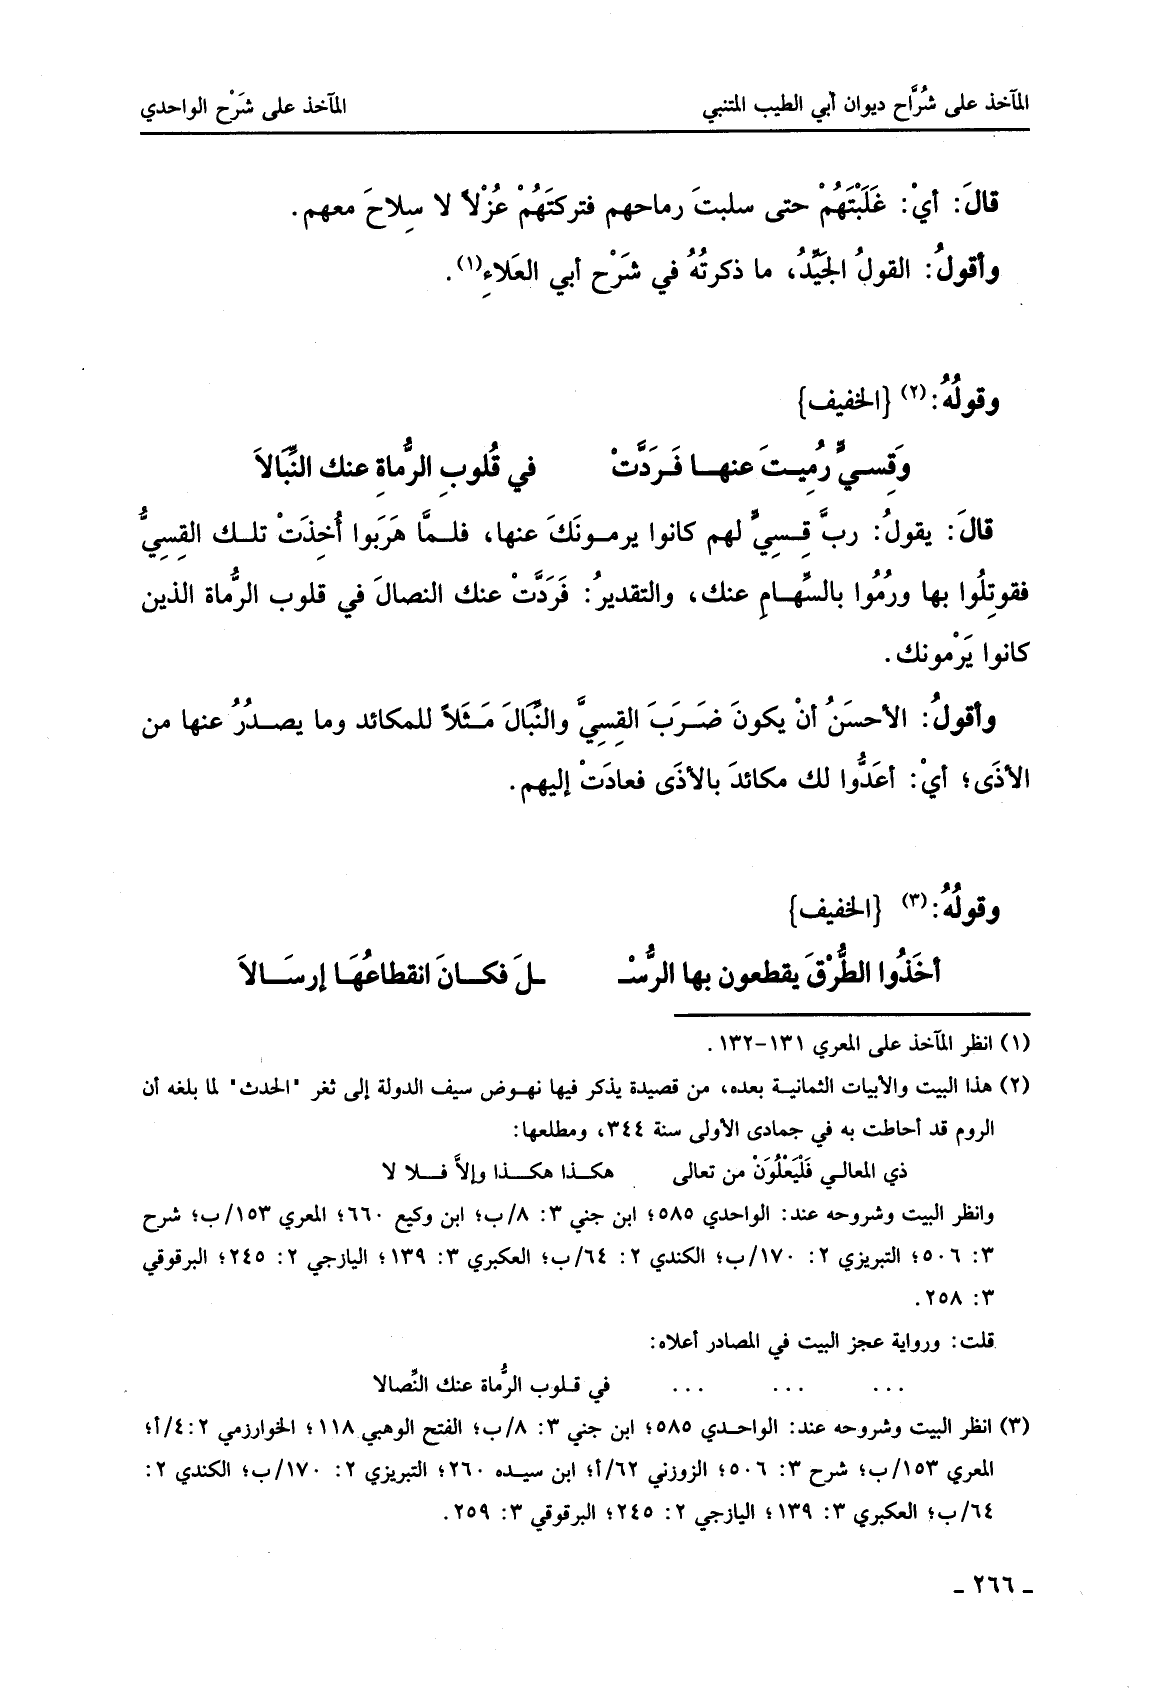 المآخذ على شُرَّاح ديوان أبي الطيب المتنبي المآخذ على شَرْح الواحدي
قالَ: أيْ: غَلَبْتَهُمْ حتى سلبتَ رماحهم فتركتَهُمْ عُزْلاً لا سِلاحَ معهم.
وأقولُ: القولُ الجَيِّدُ، ما ذكرتُهُ في شَرْح أبي العَلاءِ(١).
وقولُهُ:(٢) {الخفيف}
وَقِسيٍّ رُمِيتَ عنهــا فَـرَدَّتْ في قُلوبِ الرُّماةِ عنك النِّبَالاَ
قالَ: يقولُ: ربَّ قِـسِيٍّ لهم كانوا يرمـونَكَ عنها، فلـمَّا هَرَبوا أُخِذَتْ تلـك القِسِيُّ
فقوتِلُوا بها ورُمُوا بالسِّهـامِ عنك، والتقديرُ: فَرَدَّتْ عنك النصالَ في قلوب الرُّماة الذين
كانوا يَرْمونك.
وأقولُ: الأحسَنُ أنْ يكونَ ضَـرَبَ القِسِيَّ والنِّبَالَ مَـثَلاً للمكائد وما يصـدُرُ عنها من
الأذَى؛ أيْ: أعَدُّوا لك مكائدَ بالأذَى فعادَتْ إليهم.
وقولُهُ:(٣) {الخفيف}
أخَذُوا الطُّرْقَ يقطعون بها الرُّسْـ ـلَ فكـانَ انقطاعُهَـا إرسَـالاَ
(١) انظر المآخذ على المعري ١٣١-١٣٢.
(٢) هذا البيت والأبيات الثمانيـة بعده، من قصيدة يذكر فيها نهـوض سيف الدولة إلى ثغر "الحدث" لما بلغه أن
الروم قد أحاطت به في جمادى الأولى سنة ٣٤٤، ومطلعها:
ذي المعالـي فَلْيَعْلُوَنْ من تعالى هكـذا هكـذا وإلاَّ فـلا لا
وانظر البيت وشروحه عند: الواحدي ٥٨٥؛ ابن جني ٣: ٨/ب؛ ابن وكيع ٦٦٠؛ المعري ١٥٣/ب؛ شرح
٣: ٥٠٦؛ التبريزي ٢: ١٧٠/ب؛ الكندي ٢: ٦٤/ب؛ العكبري ٣: ١٣٩؛ اليازجي ٢: ٢٤٥؛ البرقوقي
٣: ٢٥٨.
قلت: ورواية عجز البيت في المصادر أعلاه:
... ... ... في قـلوب الرُّماة عنك النِّصالا
(٣) انظر البيت وشروحه عند: الواحـدي ٥٨٥؛ ابن جني ٣: ٨/ب؛ الفتح الوهبي ١١٨؛ الخوارزمي ٢: ٤/أ؛
المعري ١٥٣/ب؛ شرح ٣: ٥٠٦؛ الزوزني ٦٢/أ؛ ابن سيـده ٢٦٠؛ التبريزي ٢: ١٧٠/ب؛ الكندي ٢:
٦٤/ب؛ العكبري ٣: ١٣٩؛ اليازجي ٢: ٢٤٥؛ البرقوقي ٣: ٢٥٩.
ـ ٢٦٦ ـ